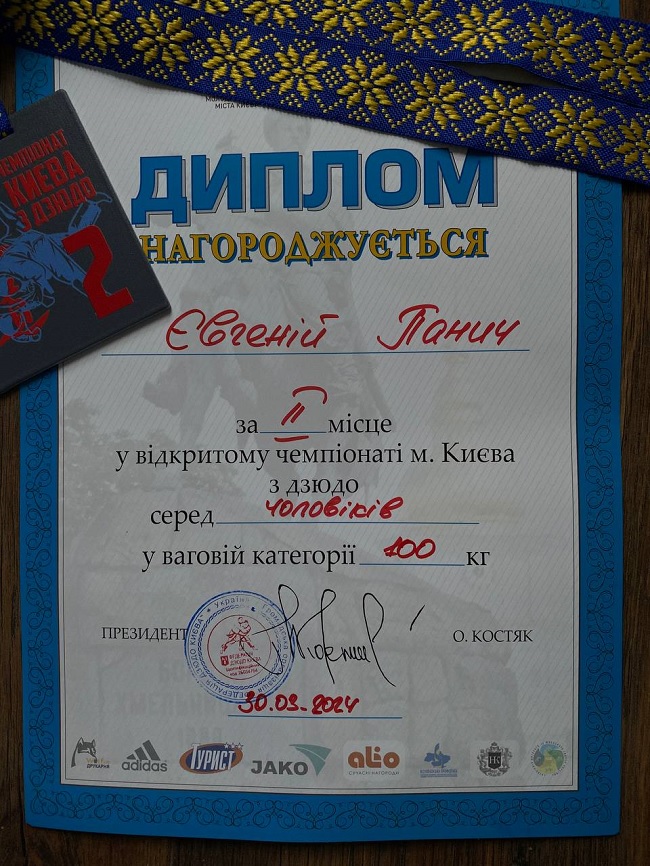 МІСТА КИЄВА
ДИПЛОМ
НАГОРОДЖУЄТЬСЯ
ЧЕМПІОНАТ
КИЄВА
З ДЗЮДО
2
Євгеній Панич
за II місце
у відкритому чемпіонаті м. Києва
з дзюдо
серед чоловіків
у ваговій категорії 100 кг
ПРЕЗИДЕНТ О. КОСТЯК
30.03.2024
ДРУКАРНЯ
adidas
ТУРИСТ
JAKO
alio
СУЧАСНІ НАГОРОДИ
НК